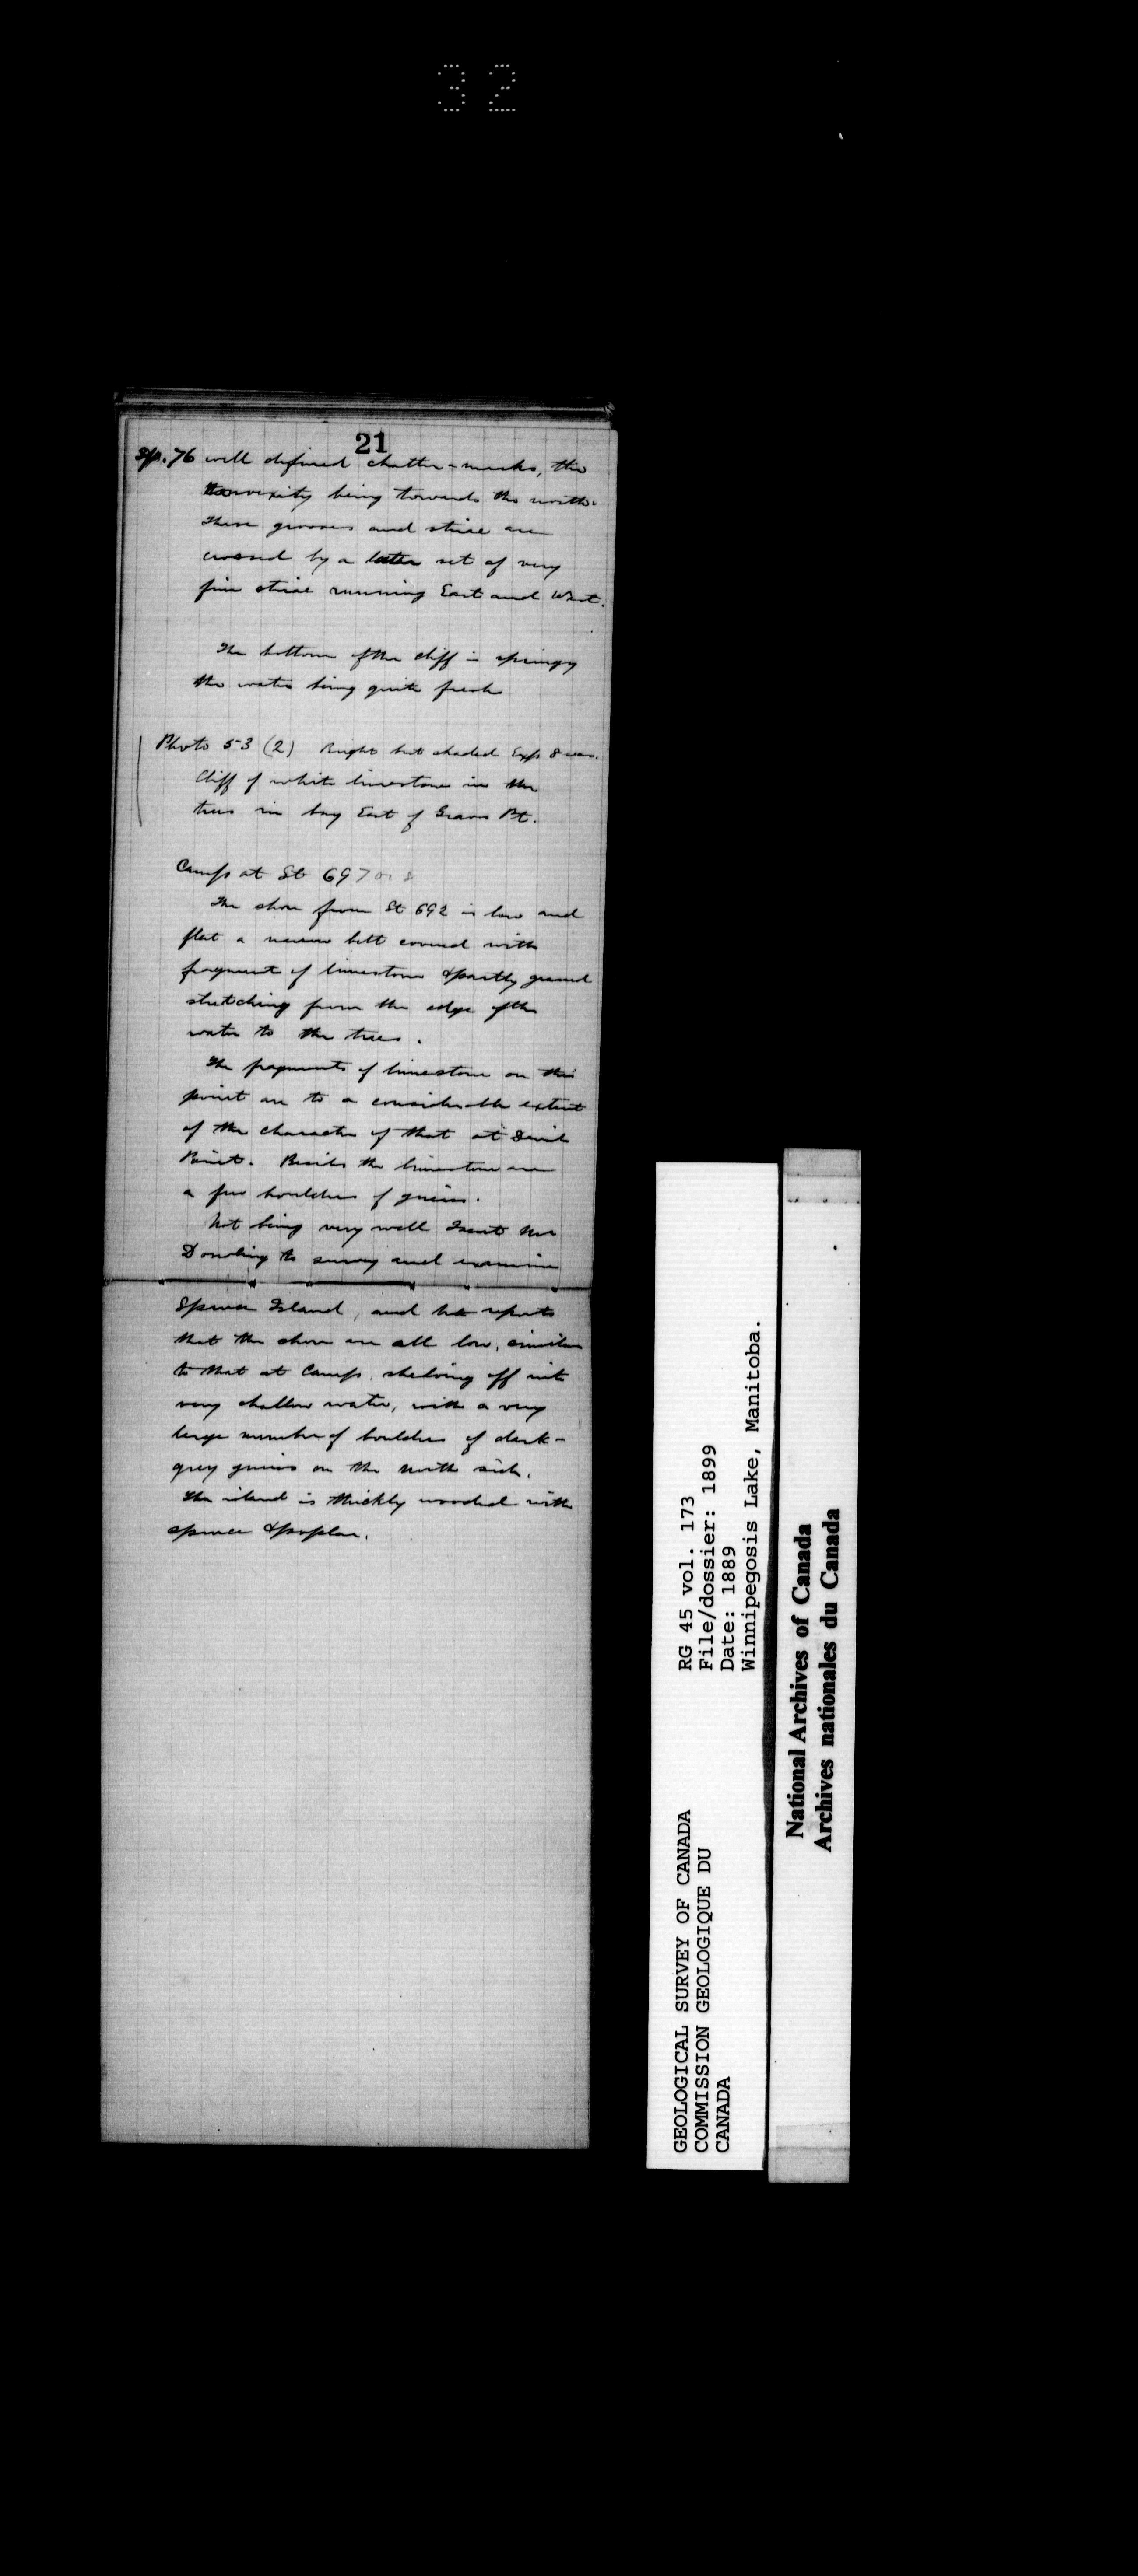 32
21
Sp. 76 well defined chatter-marks, the
convexity being towards the north.
These grooves and striae are
crossed by a later set of very
fine striae running East and West.
The bottom of the cliff is springy
the water being quite fresh
Photo 53 (2) Bright but shaded Exp 8 sec.
Cliff of white limestone in the
trees in bay East of Graves Pt.
Camp at St 697 or 8
The shore from St 692 is low and
flat a narrow belt covered with
fragment of limestone & partly gravel
stretching from the edge of the
water to the trees.
The fragments of limestone on this
point are to a considerable extent
of the character of that at Devils
Point. Besides the limestone are
a few boulders of gneiss.
Not being very well I sent Mr
Dowling to survey and examine
Spruce Island, and he reports
that the shore are all low, similar
to that at Camp, shelving off into
very shallow water, with a very
large number of boulders of dark-
grey gneiss on the north side.
The island is thickly wooded with
spruce & poplar.
GEOLOGICAL SURVEY OF CANADA
COMMISSION GEOLOGIQUE DU
CANADA
RG 45 vol. 173
File/dossier: 1899
Date: 1889
Winnipegosis Lake, Manitoba.
National Archives of Canada
Archives nationales du Canada